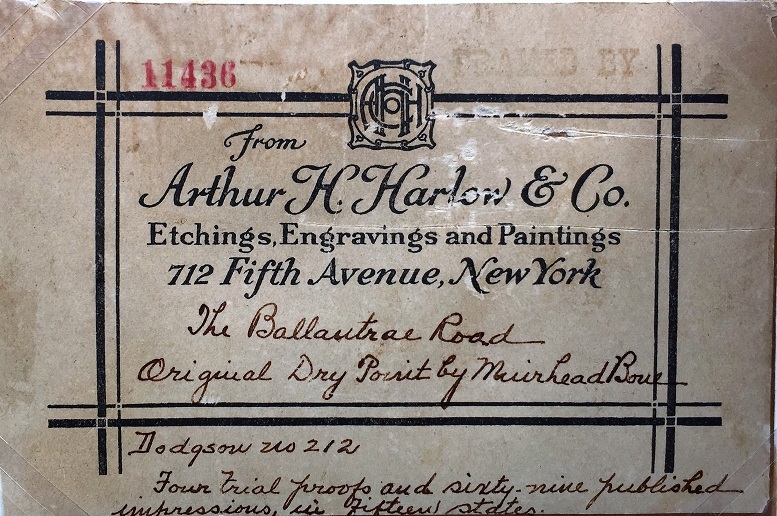 11436
FRAMED BY
AHH
From
Arthur H. Harlow & Co.
Etchings, Engravings and Paintings
712 Fifth Avenue, New York
The Ballantrae Road
Original Dry Point by Muirhead Bone
Dodgson no 212
Four trial proofs and sixty-nine published
impressions, in fifteen states.